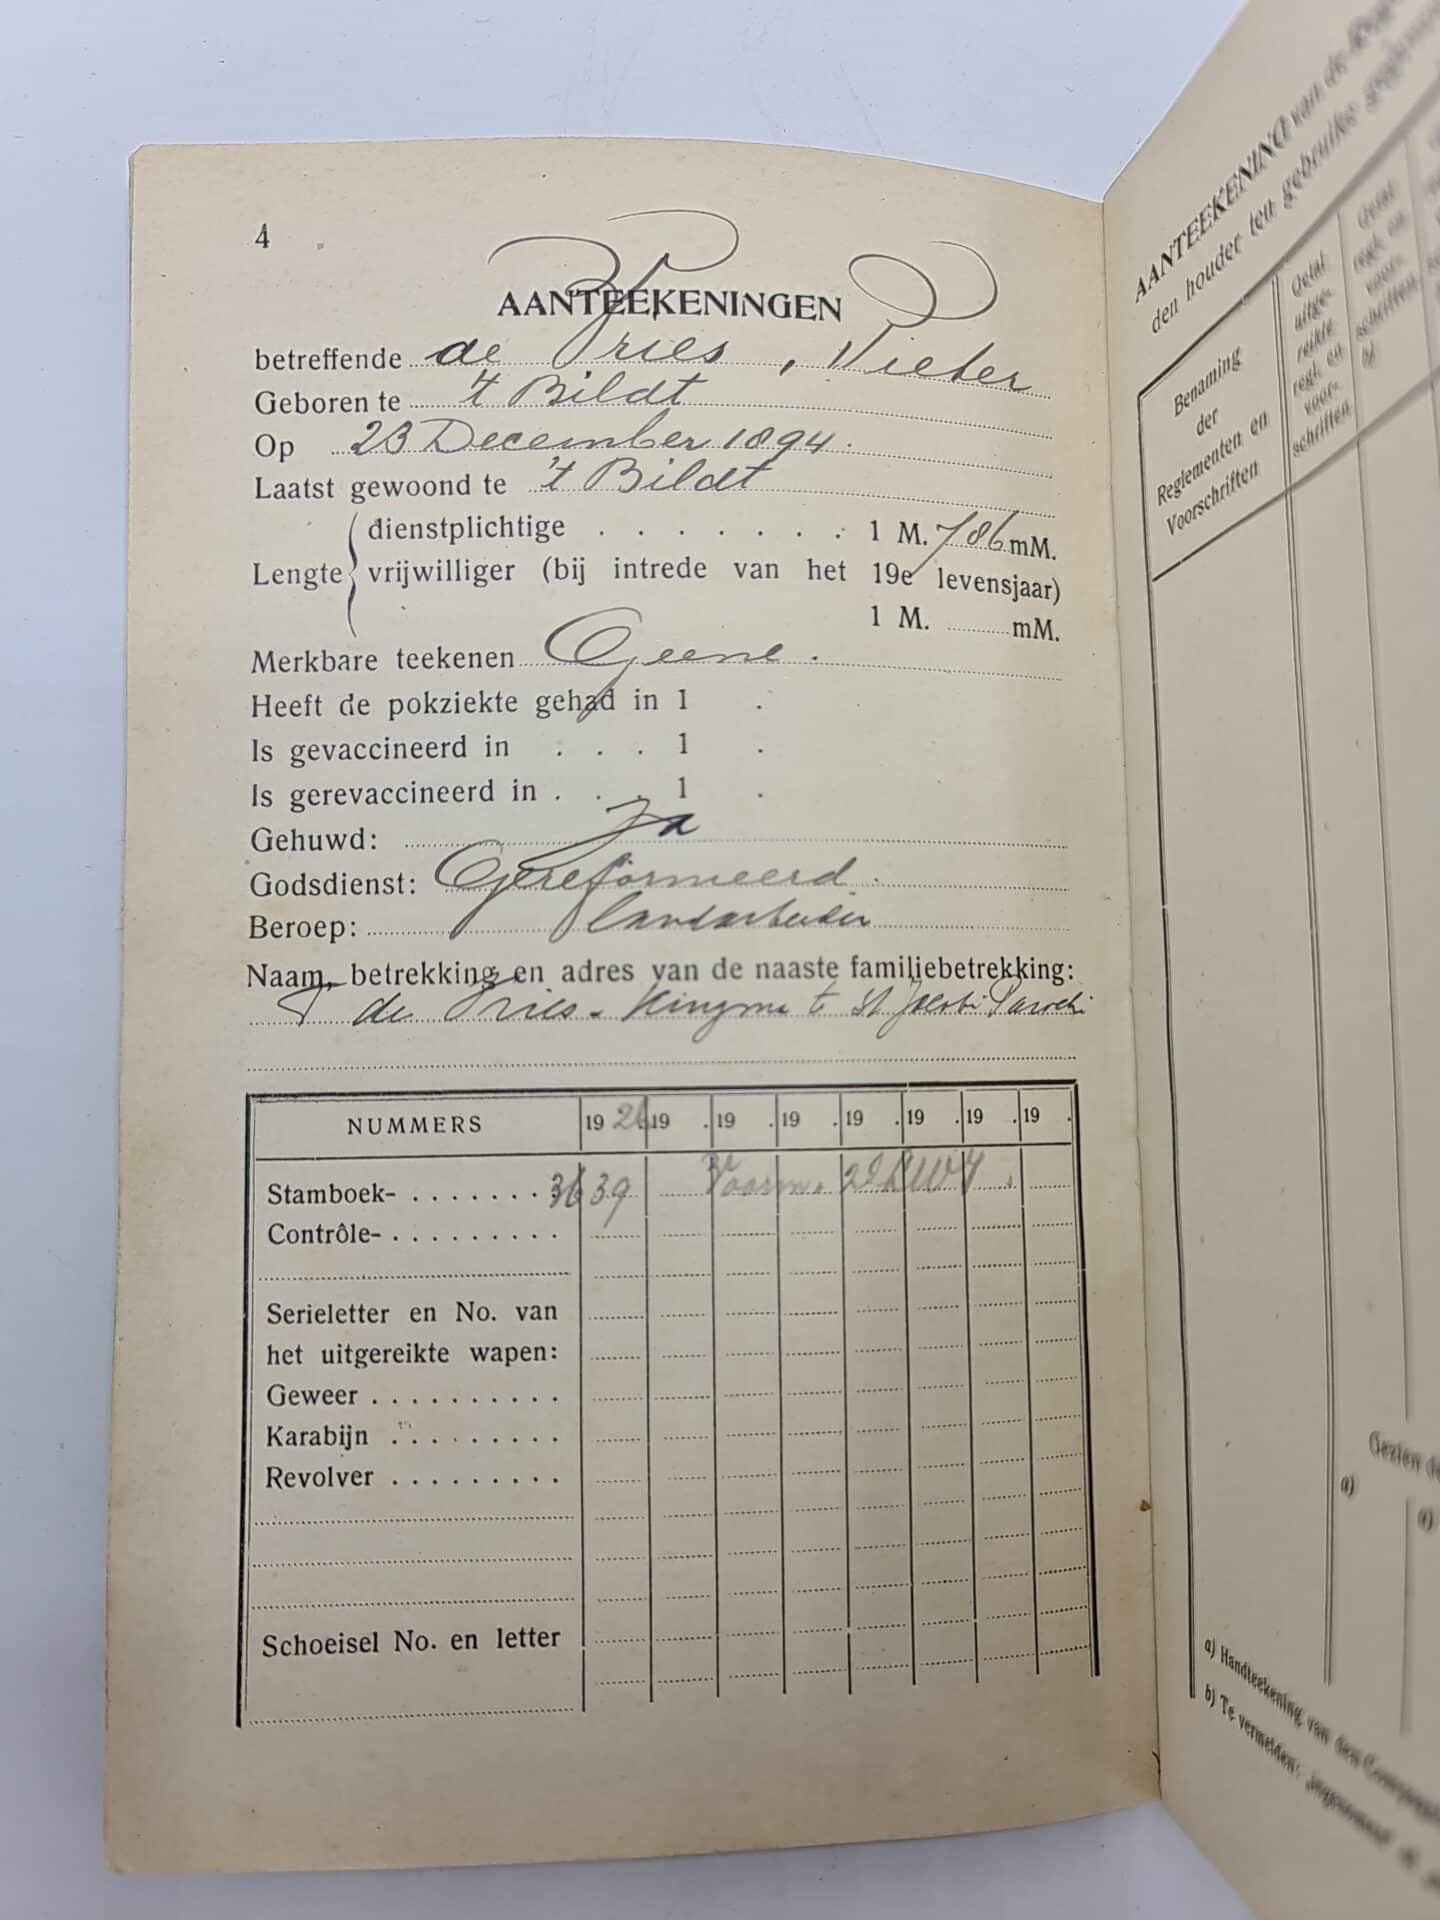 4
AANTEEKENINGEN
betreffende de Vries, Pieter
Geboren te 't Bildt
Op 23 December 1894.
Laatst gewoond te 't Bildt
Lengte dienstplichtige . . . . . . . 1 M. 786 mM.
vrijwilliger (bij intrede van het 19e levensjaar)
1 M. mM.
Merkbare teekenen Geene.
Heeft de pokziekte gehad in 1 .
Is gevaccineerd in . . . 1 .
Is gerevaccineerd in . . . 1 .
Gehuwd: Ja
Godsdienst: Gereformeerd.
Beroep: landarbeider
Naam, betrekking en adres van de naaste familiebetrekking:
de Vries-Kingma te St Jacobi Parochie
NUMMERS 19 26 19 . 19 . 19 . 19 . 19 . 19 . 19 .
Stamboek- . . . . . . . 3639
Contrôle- . . . . . . . . .
Serieletter en No. van
het uitgereikte wapen:
Geweer . . . . . . . . . .
Karabijn . . . . . . . . .
Revolver . . . . . . . . .
Schoeisel No. en letter
AANTEEKENING van de
den houder ten gebruike
Benaming
der
Reglementen en
Voorschriften
Getal
uitge-
reikte
regl. en
voor-
schriften
Getal
regl. en
voor-
schriften
b)
Gezien de
a)
a)
a) Handteekening van den
b) Te vermelden: